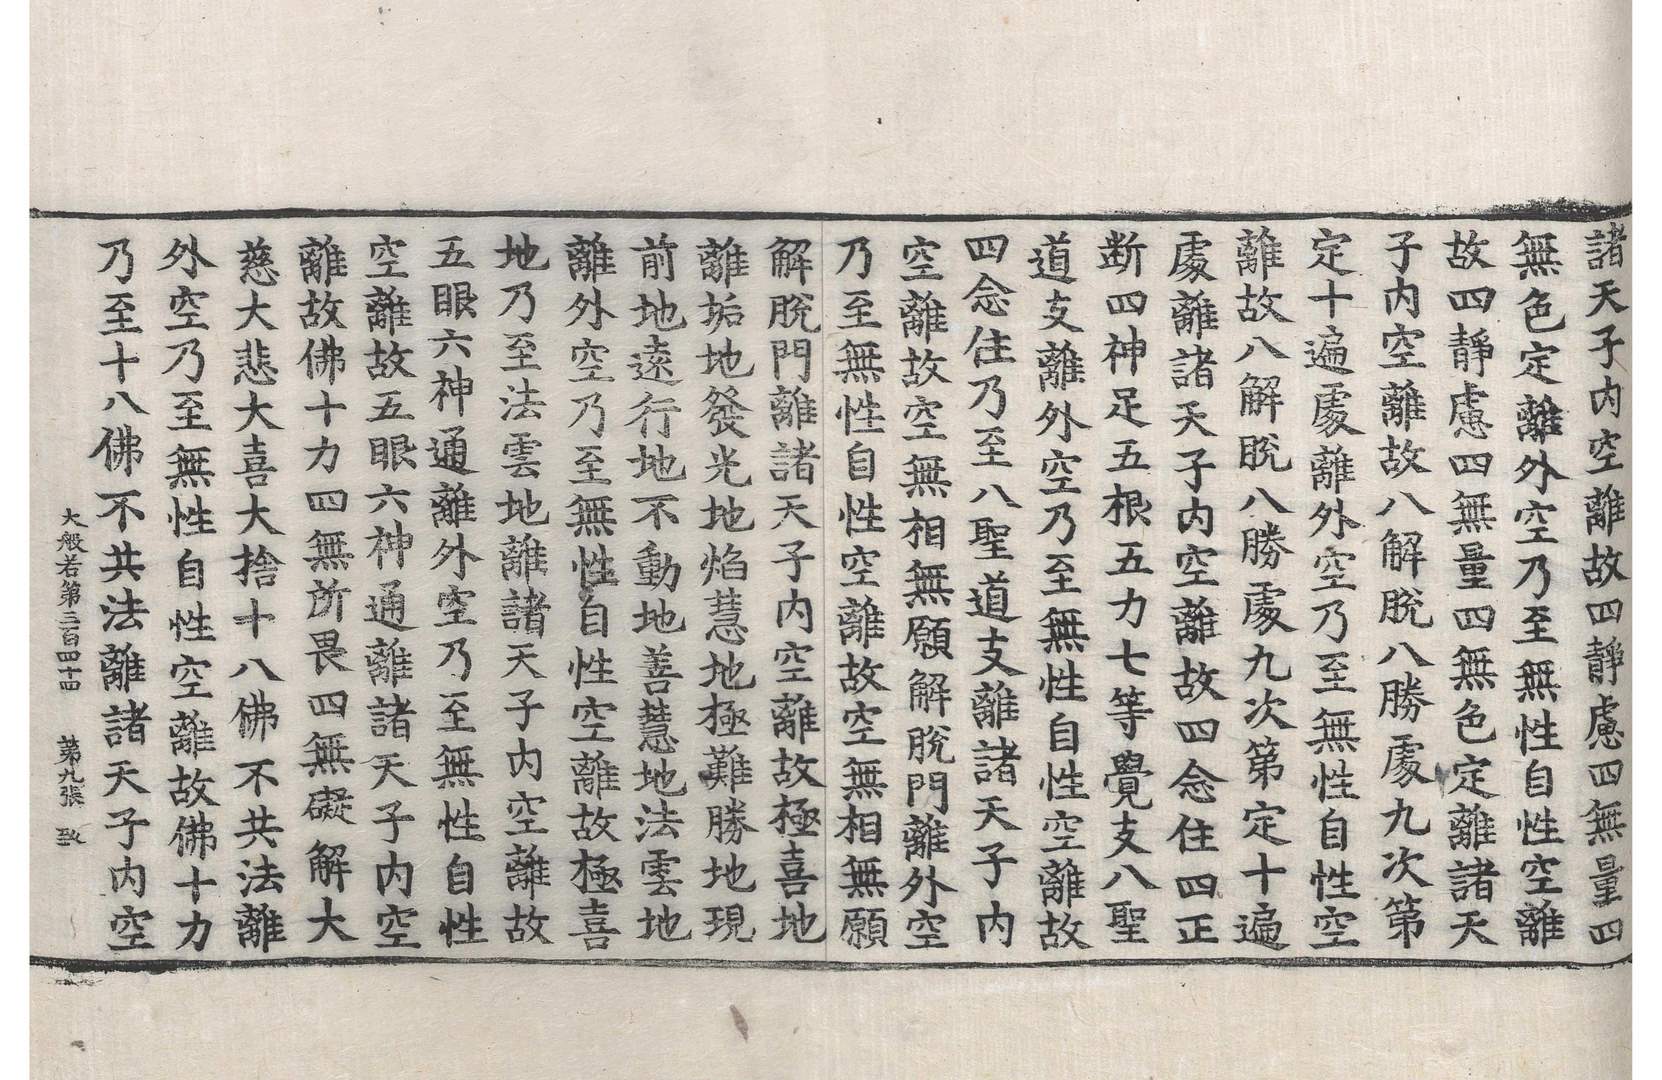 諸天子内空離故四靜慮四無量四
無色定離外空乃至無性自性空離
故四靜慮四無量四無色定離諸天
子内空離故八解脫八勝處九次第
定十遍處離外空乃至無性自性空
離故八解脫八勝處九次第定十遍
處離諸天子内空離故四念住四正
断四神足五根五力七等覺支八聖
道支離外空乃至無性自性空離故
四念住乃至八聖道支離諸天子内
空離故空無相無願解脫門離外空
乃至無性自性空離故空無相無願
解脫門離諸天子内空離故極喜地
離垢地發光地焰慧地極難勝地現
前地遠行地不動地善慧地法雲地
離外空乃至無性自性空離故極喜
地乃至法雲地離諸天子内空離故
五眼六神通離外空乃至無性自性
空離故五眼六神通離諸天子内空
離故佛十力四無所畏四無礙解大
慈大悲大喜大捨十八佛不共法離
外空乃至無性自性空離故佛十力
乃至十八佛不共法離諸天子内空
大般若第三百四十四 第九張 致